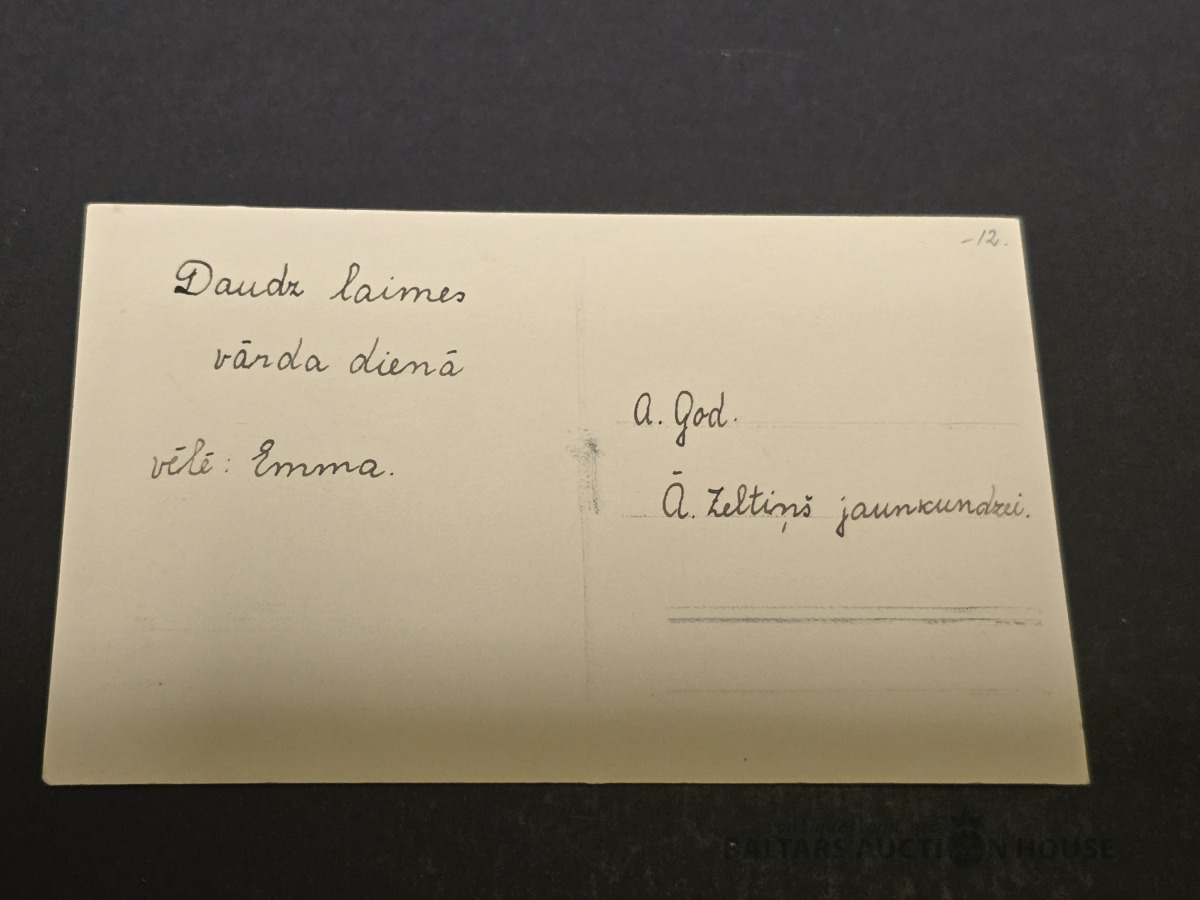 -12.
Daudz laimes
vārda dienā
vēlē: Emma.
A. God.
Ā. Zeltiņš jaunkundzei.
BALTARS AUCTION HOUSE